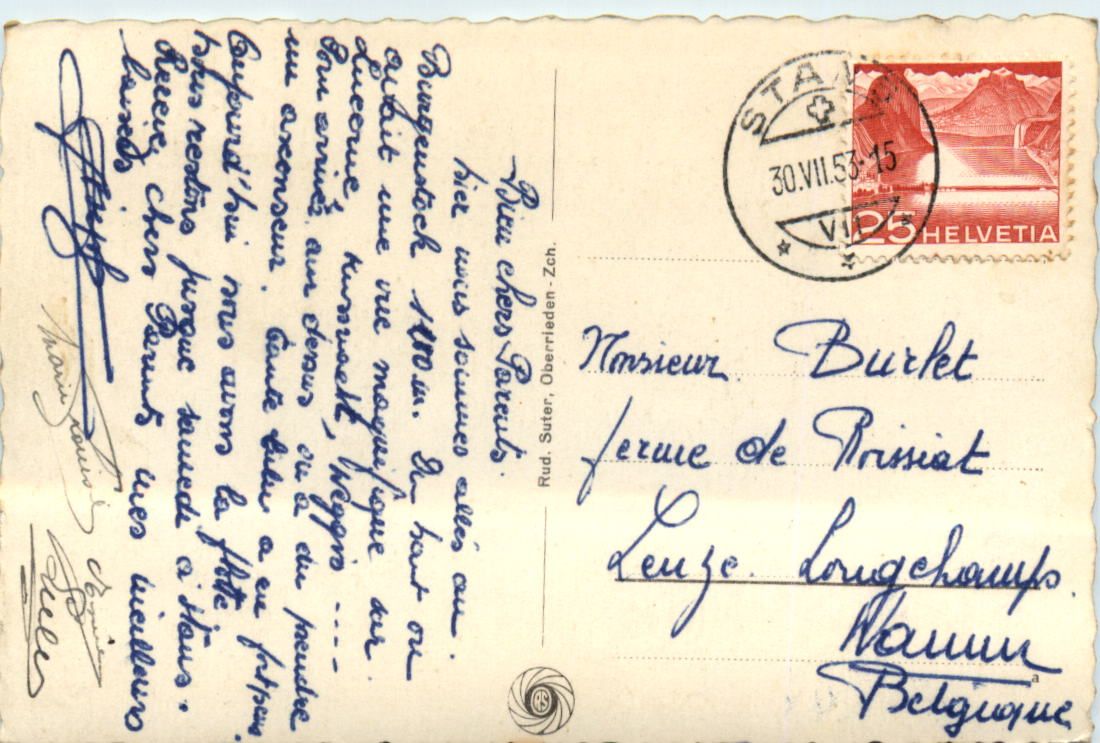 Bien chers Parents.
Hier nous sommes allés au
Burgenstock 1100 m. Du haut on
avait une vue magnifique sur
Lucerne, kussnacht, Weggis ----
Pour arriver au dessus on a du prendre
un ascenseur. Tante a eu
Aujourd'hui nous avons la flotte.
Nous restons jusque samedi à Stans.
Recevez, chers Parents mes meilleurs
baisers
Rud. Suter, Oberrieden - Zch.
STANS
30.VII.53-15
VII
25 HELVETIA
Monsieur Burlet
ferme de Roissiat
Leuze. Longchamps.
Namur
Belgique
RS
a